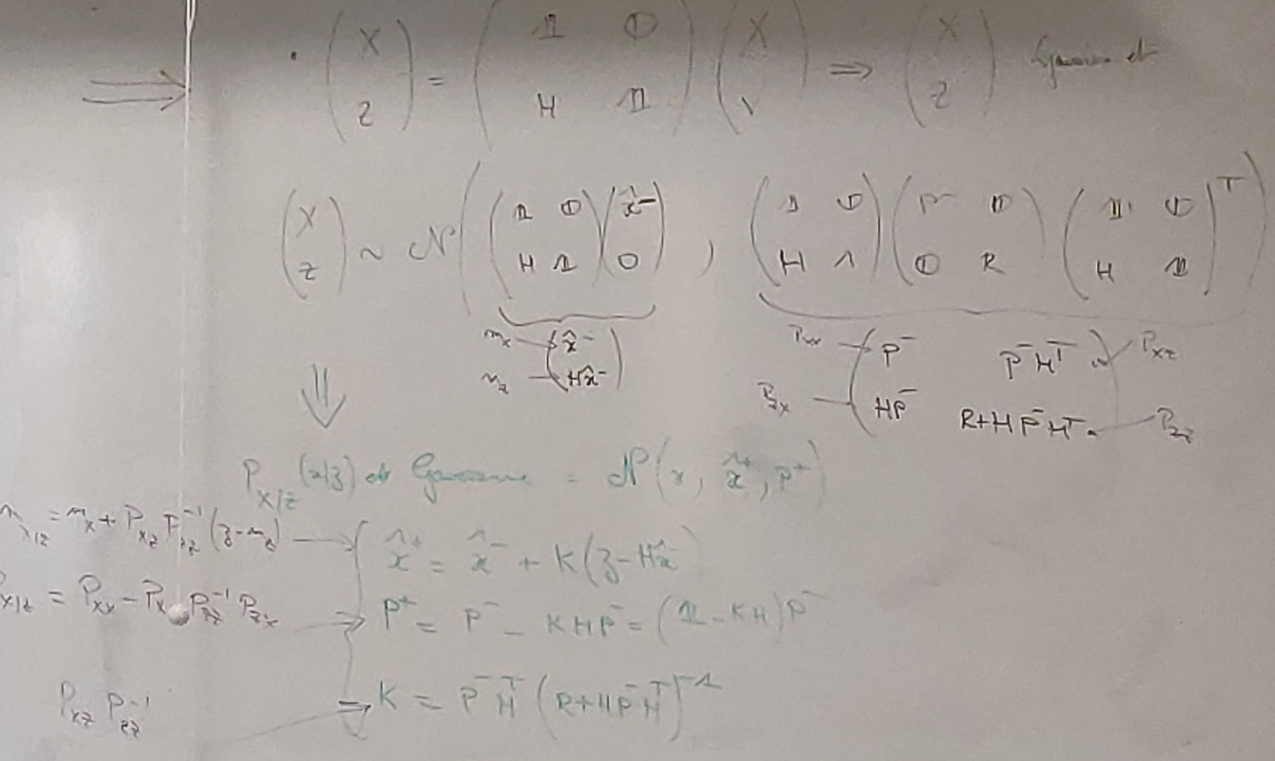 ⟹ • (X ; Z) = (𝟙 𝟘 ; H 𝟙) (X ; V) ⟹ (X ; Z) Gaussien et
(X ; Z) ~ 𝒩( (𝟙 𝟘 ; H 𝟙) (x̂⁻ ; 0) , (𝟙 𝟘 ; H 𝟙) (P⁻ 𝟘 ; 𝟘 R) (𝟙 𝟘 ; H 𝟙)ᵀ )
m_x → (x̂⁻ ; Hx̂⁻) ← m_z
P_xx P_zx (P⁻ P⁻Hᵀ ; HP⁻ R+HP⁻Hᵀ) P_xz P_zz
⇓
P_{X/Z}(x|z) est Gaussienne = 𝒩(x, x̂⁺, P⁺)
m_{x|z} = m_x + P_xz P_zz⁻¹ (z − m_z) → x̂⁺ = x̂⁻ + K(z − Hx̂⁻)
P_{x|z} = P_xx − P_xz P_zz⁻¹ P_zx → P⁺ = P⁻ − KHP⁻ = (𝟙 − KH)P⁻
P_xz P_zz⁻¹ → K = P⁻Hᵀ (R + HP⁻Hᵀ)⁻¹